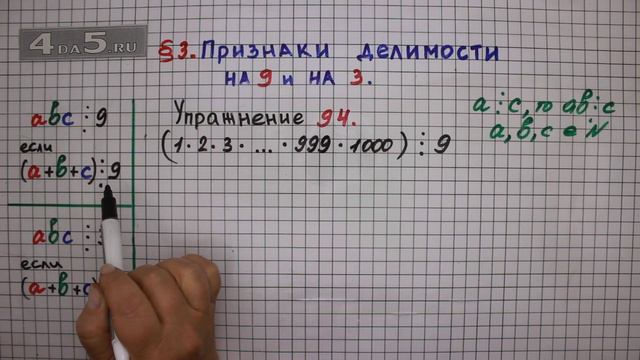 4DA5.RU
§3. Признаки делимости
на 9 и на 3.
abc ⋮ 9
если
(a+b+c) ⋮ 9
abc ⋮
если
(a+b+c)
Упражнение 94.
(1·2·3· ... ·999·1000) ⋮ 9
a ⋮ c, то ab ⋮ c
a, b, c ∈ N